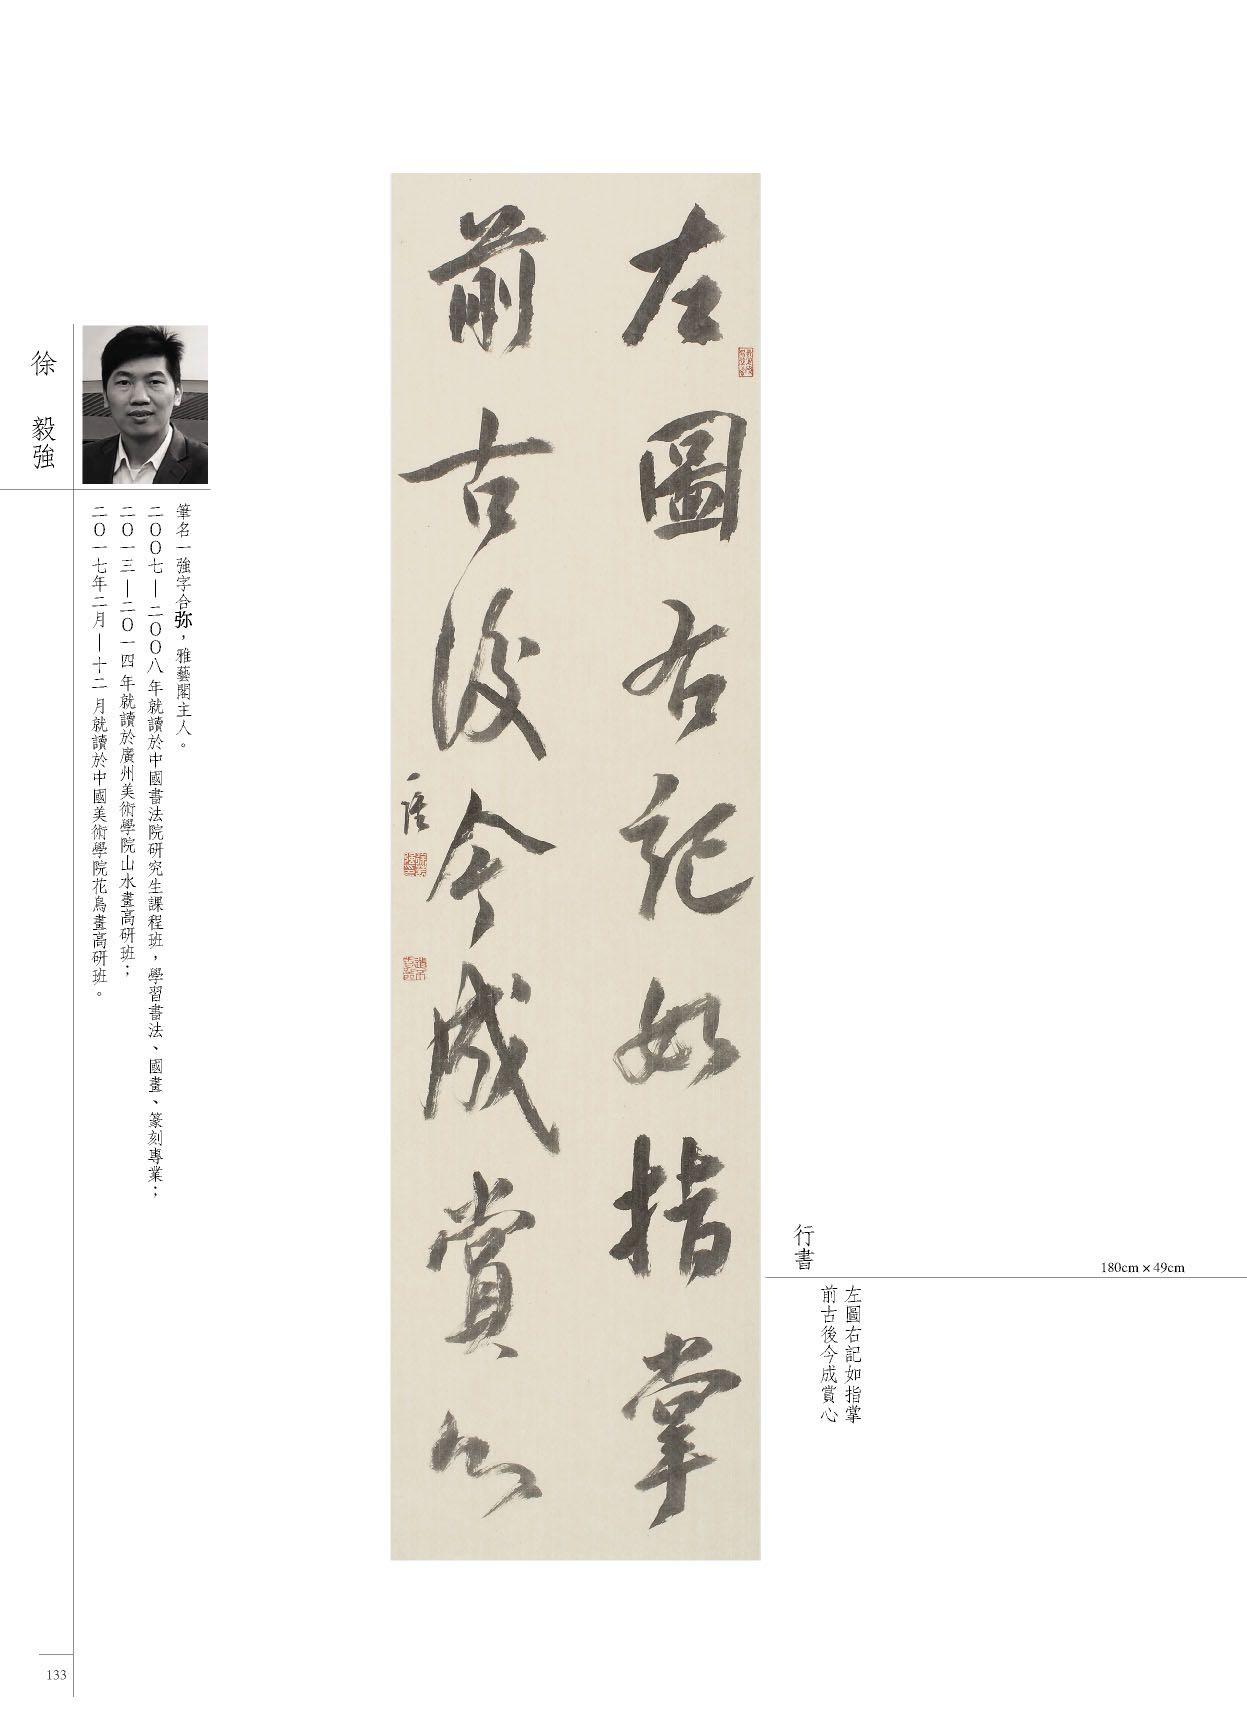 左圖右記如指掌
前古後今成賞心
一强
行書
180cm×49cm
左圖右記如指掌
前古後今成賞心
徐 毅強
筆名一強字合弥，雅藝閣主人。
二〇〇七—二〇〇八年就讀於中國書法院研究生課程班，學習書法、國畫、篆刻專業；
二〇一三—二〇一四年就讀於廣州美術學院山水畫高研班；
二〇一七年二月—十二月就讀於中國美術學院花鳥畫高研班。
133